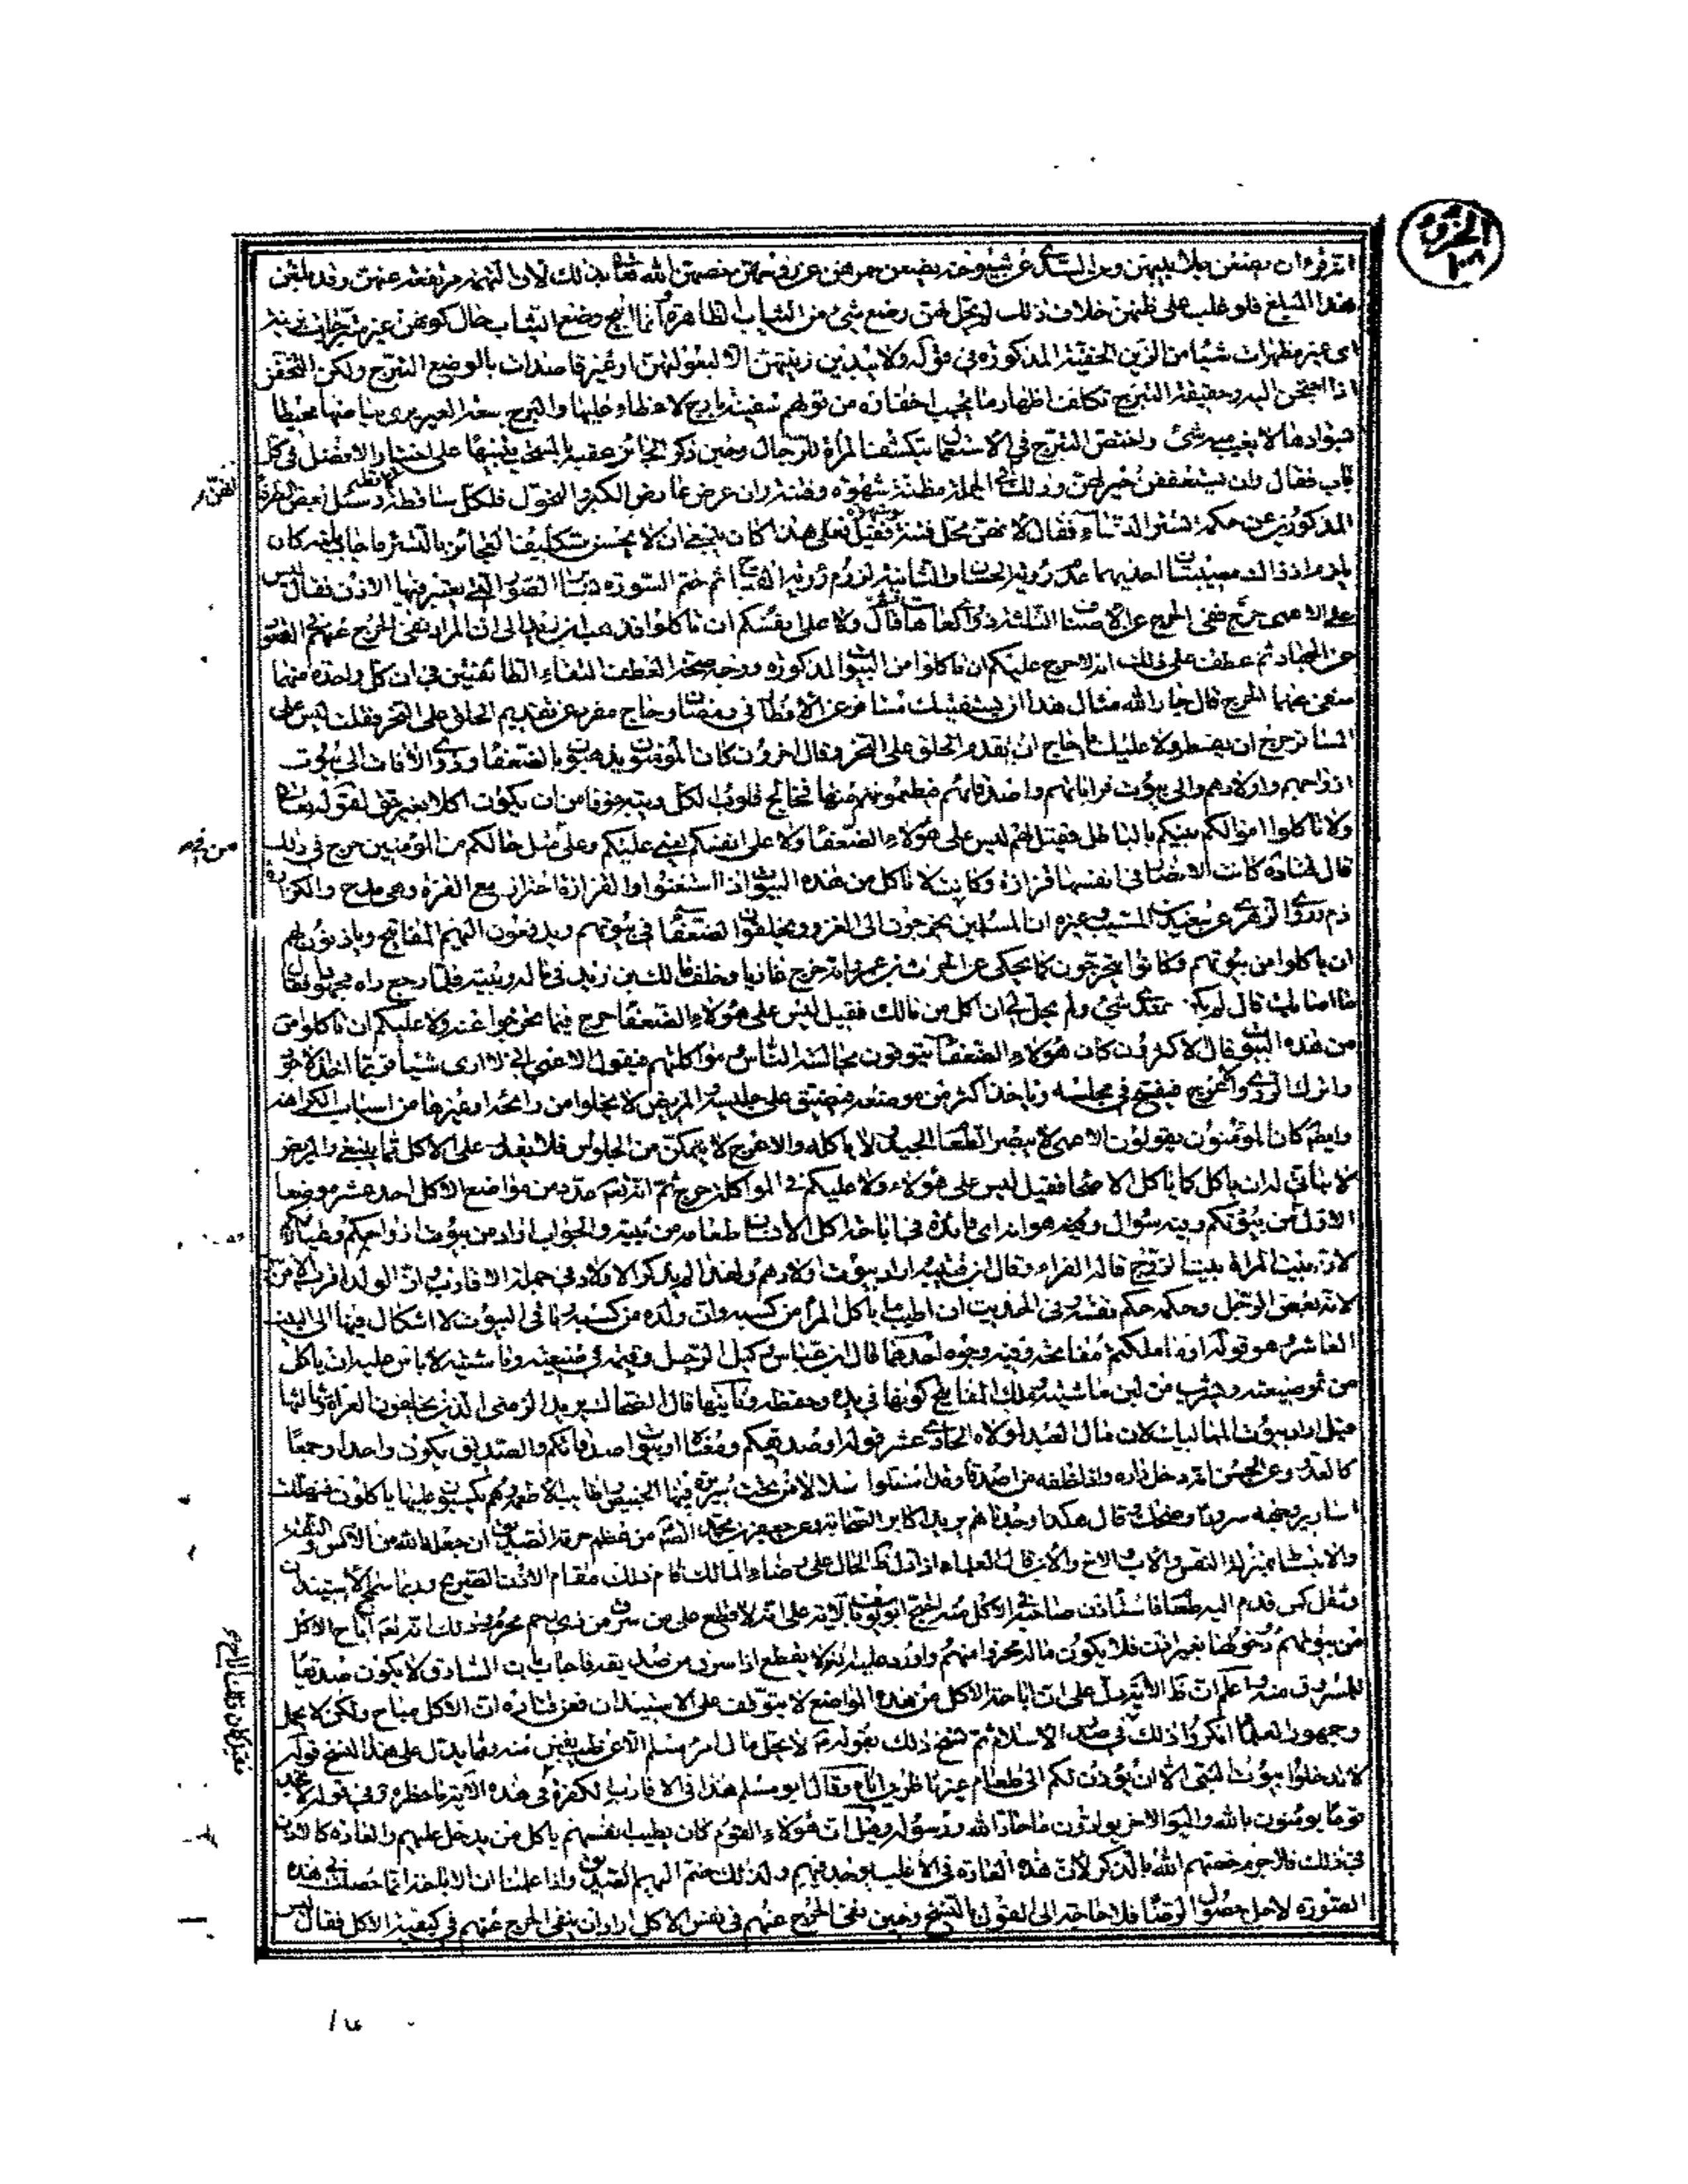 الجزء ١٨
هذا المبلغ فلو غلب على ظنهن خلاف ذلك لم يحل لهن وضع شئ من الثياب الظاهرة وانما ابيح وضع الثياب حال كونهن غير متبرجات بزينة
اى غير مظهرات شيئا من الزين الخفية المذكورة فى قوله ولا يبدين زينتهن الا لبعولتهن او غير قاصدات بالوضع التبرج ولكن التخفف
اذا احتجن اليه وحقيقة التبرج تكلف اظهار ما يجب اخفاؤه من قولهم سفينة بارج لا غطاء عليها والبرج سعة العين يرى بياضها محيطا
بسوادها لا يغيب منه شئ واختص التبرج فى الاستعمال بتكشف المرأة للرجال وحين ذكر الجائز عقبه بالمستحب تنبيها على اختيار الافضل فى كل
باب فقال وان يستعففن خير لهن وذلك انهن فى الجملة مظنة شهوة وفتنة وان عرض عارض الكبر والنحول فلكل ساقطة لاقطة وسئل بعض الظرفاء
المذكورين عن حكمة تستر النساء فقال لانهن محل فتنة وشهوة فقيل فعلى هذا كان ينبغى ان لا يحسن تكليف العجائز بالتستر فاجاب بانه كان
يلزم اذ ذاك مصيبتان احديهما عدم رؤية الحسان والثانية لزوم رؤية القباح ثم ختم السورة بسائر الصور التى يعتبر فيها الاذن فقال ليس
على الاعمى حرج نفى الحرج عن الاصناف الثلاثة ذوى العاهات ثم قال ولا على انفسكم ان تأكلوا فذهب ابن زيد الى ان المراد نفى الحرج عنهم فى القعود
عن الجهاد ثم عطف على ذلك انه لا حرج عليكم ان تأكلوا من البيوت المذكورة ووجه صحة العطف التقاء الطائفتين فى ان كل واحدة منهما
منفى عنها الحرج قال جار الله مثال هذا ان يستفتيك مسافر عن الافطار فى رمضان وحاج مفرد عن تقديم الحلق على النحر فقلت ليس على
المسافر حرج ان يفطر ولا عليك يا حاج ان تقدم الحلق على النحر وقال اخرون كان المؤمنون يذهبون بالضعفاء وذوى الافات الى بيوت
ازواجهم واولادهم والى بيوت قراباتهم واصدقائهم فيطعمونهم منها فخالج قلوب الكل ريبة خوفا من ان يكون اكلا بغير حق لقوله تعالى
ولا تأكلوا اموالكم بينكم بالباطل فقيل لهم ليس على هؤلاء الضعفاء ولا على انفسكم يعنى عليكم وعلى مثل حالكم من المؤمنين حرج فى ذلك
قال قتادة كانت الانصار فى انفسها قزازة وكانت لا تأكل من هذه البيوت اذا استغنوا والقزازة احتراز مع العزة وهى مدح والكزازة
ذم وروى الزهرى عن سعيد بن المسيب وغيره ان المسلمين يخرجون الى الغزو ويخلفون الضعفاء فى بيوتهم ويدفعون اليهم المفاتيح ويأذنون لهم
ان يأكلوا من بيوتهم فكانوا يتحرجون كما يحكى عن الحرث بن عمرو انه خرج غازيا وخلف مالك بن زيد فى ماله وبيته فلما رجع راه مجهودا فقال
ما اصابك قال لم يكن عندى شئ ولم يحل لى ان اكل من مالك فقيل ليس على هؤلاء الضعفاء حرج فيما تحرجوا عنه ولا عليكم ان تأكلوا من
من هذه البيوت وقال الاكثرون كان هؤلاء الضعفاء يتوقون مجالسة الناس ومواكلتهم فيقول الاعمى انى لا ارى شيئا فربما اخذ الاجود
واترك الردى والاعرج فيفسح فى مجلسه ويأخذ اكثر من موضعه فيضيق على جليسه والمريض لا يخلو من رائحة او غيرها من اسباب الكراهة
وايضا كان المؤمنون يقولون الاعمى لا يبصر الطعام الجيد فلا يأكله والاعرج لا يتمكن من الجلوس فلا يقدر على الاكل كما ينبغى والمريض
لا يتأتى له ان يأكل كما يأكل الاصحاء فقيل ليس على هؤلاء ولا عليكم فى المواكلة حرج ثم انه تعالى عدد من مواضع الاكل احد عشر موضعا
الاول من بيوتكم وفيه سؤال وهو انه اى فائدة فى اباحة اكل الانسان طعامه من بيته والجواب اراد من بيوت ازواجكم وعيالكم
لان بيت المرأة بيت الزوج قاله الفراء وقال ابن قتيبة اراد بيوت اولادهم ولهذا لم يذكر الاولاد فى جملة الاقارب لان الولد اقرب الاقربين
لانه بعض الرجل وحكمه حكم نفسه وفى الحديث ان اطيب ما يأكل المرء من كسبه وان ولده من كسبه وباقى البيوت لا اشكال فيها الى البيت
العاشر هو قوله او ما ملكتم مفاتحه وفيه وجوه احدها قال ابن عباس وكيل الرجل وقيمه فى ضيعته وماشيته لا بأس عليه ان يأكل
من ثمر ضيعته ويشرب من لبن ماشيته وملك المفاتيح كونها فى يده وحفظه وثانيها قال الضحاك يريد الزمنى الذين يخلفون الغزاة وثالثها
قيل اراد بيوت المماليك لان مال العبد لمولاه الحادى عشر قوله او صديقكم ومعناه او بيوت اصدقائكم والصديق يكون واحدا وجمعا
كالعدو وعن الحسن انه دخل داره واذا حلقة من اصدقائه وقد استلوا سلالا من تحت سريره فيها الخبيص واطايب الاطعمة وهم مكبون عليها يأكلون فتهللت
اسارير وجهه سرورا وضحك وقال هكذا وجدناهم يريد اكابر الصحابة وعن جعفر بن محمد الصادق من عظم حرمة الصديق ان جعله الله من الانس والثقة
والانبساط بمنزلة النفس والاب والاخ والابن قال العلماء اذا دل ظاهر الحال على رضاء المالك قام ذلك مقام الاذن الصريح وربما سمج الاستيذان
وثقل كمن قدم اليه طعام فاستأذن صاحبه فى الاكل منه احتج ابو يوسف بالاية على انه لا قطع على من سرق من ذى رحم محرم وذلك انه تعالى اباح الاكل
من بيوتهم ودخولها بغير اذن فلا يكون ماله محرزا منهم واورد عليه انه يلزم ان لا يقطع اذا سرق من صديقه فاجاب بان السارق لا يكون صديقا
للمسروق منه واعلم ان ظاهر الاية دل على ان اباحة الاكل من هذه المواضع لا يتوقف على الاستيذان فعن قتادة ان الاكل مباح ولكن لا يحمل
وجمهور العلماء انكروا ذلك فى صدر الاسلام ثم نسخ ذلك بقوله لا يحل مال امرئ مسلم الا عن طيب نفس منه ومما يدل على هذا النسخ قوله
لا تدخلوا بيوت النبى الا ان يؤذن لكم الى طعام غير ناظرين اناه وقال ابو مسلم هذا فى الاقارب الكفرة وفى هذه الاية اباحة ما حظره فى قوله لا تجد
قوما يؤمنون بالله واليوم الاخر يوادون من حاد الله ورسوله وقيل ان هؤلاء القوم كان تطيب انفسهم بأكل من يدخل عليهم والعادة كالاذن
فى ذلك فلا جرم خصهم الله بالذكر لان هذه العادة فى الاغلب توجد فيهم ولذلك ضم اليهم الصديق واذا علمنا ان الاباحة انما حصلت فى هذه
الصورة لاجل حصول الرضا فلا حاجة الى القول بالنسخ وحين نفى الحرج عنهم فى نفس الاكل اراد ان ينفى الحرج عنهم فى كيفية الاكل فقال ليس